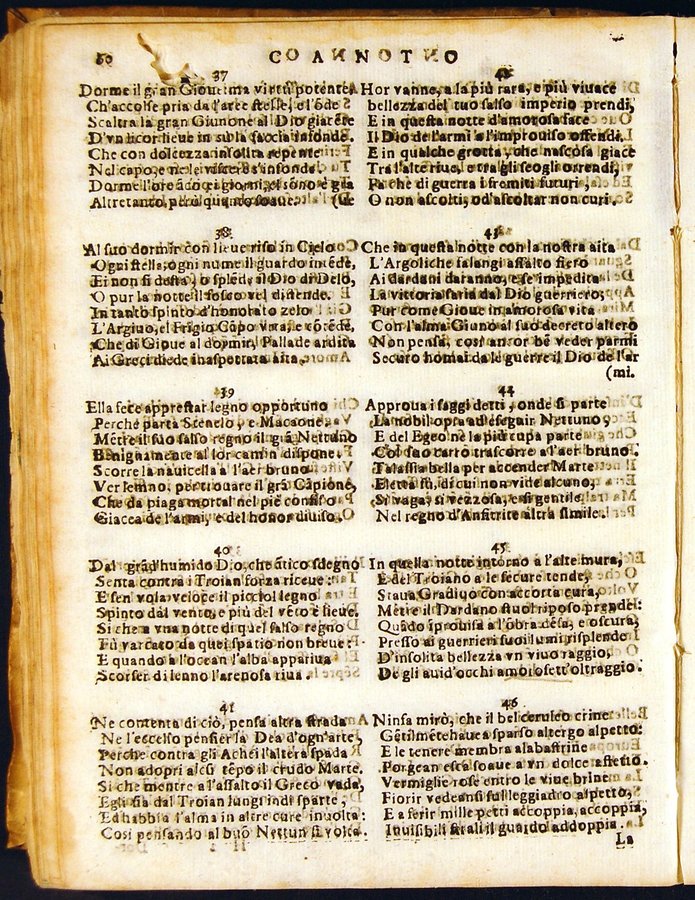 60 CO ANNOTNO
37
Dorme il gran Gioue: ma virtù potente
Ch'accolse pria da l'arée stesse, e l'ode
Scaltra la gran Giunone al Dio giacére
D'vn licor lieue in sù la faccia infonde.
Che con dolcezza insolita repente
Nel capo, e ne le viscere s'infonde
Dorme l'ore à
Altretanto, però quando soaue. (de
38
Al suo dormir con lieue riso in Cielo
Ogni stella, ogni nume il guardo intéde,
Ei non si desta, o spléde il Dio di Delo,
O pur la notte il fosco vel distende.
In tanto spinto d'honorato zelo
L'Argiuo, el Frigio Cápo vrta, e cótéde,
Che di Gioue al dormir, Pallade ardita
Ai Greci diede inaspettata aita.
39
Ella fece apprestar legno opportuno
Perche parta Stenelo, e Macaone,
Métre il suo falso regno il grá Nettuno
Benignamente al lor camin dispone.
Scorre la nauicella à l'aer bruno
Ver lemno, per trouare il grá Cápione,
Che da piaga mortal nel piè confitto
Giacea de l'armi, e del honor diuiso.
40
Dal grád'humido Dio, che ático sdegno
Senta contra i Troian forza riceue:
E sen vola veloce il picciol legno
Spinto dal vento, e più del véto è lieue.
Si che a vna notte di quel falso regno
Fù varcato da quei spatio non breue:
E quando à l'ocean l'alba appariua
Scorser di lenno l'arenosa riua.
41
Ne contenta di ciò, pensa altra strada
Ne l'eccelso pensier la Dea d'ogn'arte,
Perche contra gli Achei l'altera spada
Non adopri alcú tépo il crudo Marte.
Si che mentre a l'assalto il Greco vada,
Egli sia dal Troian lungi indisparte,
Ed habbia l'alma in altre cure inuolta:
Cosi pensando al buó Nettun si volta.
42
Hor vanne, a la più rara, e più viuace
bellezza del tuo falso imperio prendi,
E in questa notte d'amorosa face
Il Dio de l'armi a l'improuiso offendi.
E in qualche grotta, che nascosa giace
Tra l'alte riue, e tra gli scogli orrendi,
Fa che di guerra i fremiti futuri,
O non ascolti, od'ascoltar non curi.
43
Che in questa notte con la nostra aita
L'Argoliche falangi assalto fiero
Ai Dardani daranno, e se impedita
La vittoria saria dal Dio guerriero;
Pur come Gioue in amorosa vita
Con l'alma Giuno al suo decreto altero
Non pensa, così ancor bé veder parmi
Securo homai da le guerre il Dio de l'ar
(mi.
44
Approua i saggi detti, onde si parte
La nobil opra ad eseguir Nettuno;
E del Egeo nè la più cupa parte
Col suo carro trascorre a l'aer bruno.
Talassia bella per accender Marte
Eletta fù, di cui non vide alcuno,
Si vaga, si vezzosa, e si gentile
Nel regno d'Anfitrite altra simile.
45
In quella notte intorno à l'alte mura,
E del Troiano a le secure tende,
Staua Gradiuo con accorta cura,
Métre il Dardano stuol riposo prende:
Quádo improuisa à l'óbra désa, e oscura,
Presso ai guerrieri suoi lumi risplende
D'insolita bellezza vn viuo raggio,
De gli auid'occhi amoroset t'oltraggio.
46
Ninfa mirò, che il bel ceruleo crine
Gétilméte hauea sparso a tergo al petto:
E le tenere membra alabastrine
Porgean esca soaue a vn dolce affetto.
Vermiglie rose entro le viue brine
Fiorir vedeansi sul leggiadro aspetto,
E a ferir mille petti accoppia, accoppia,
Inuisibili strali il guardo addoppia.
La